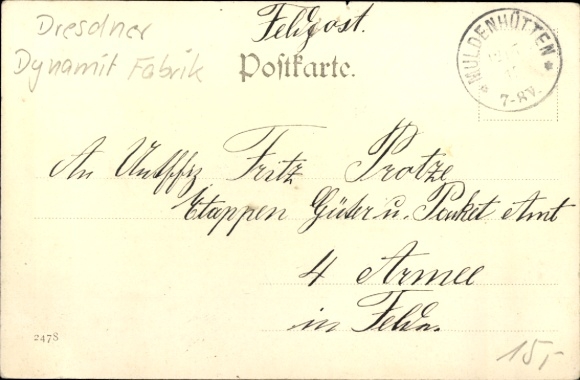 Dresdner
Dynamit Fabrik
Feldpost.
Postkarte.
* MULDENHÜTTEN *
7-8V.
An Untffz Fritz Protze
Etappen Güter u. Paket Amt
4 Armee
in Felde.
2478
15,-